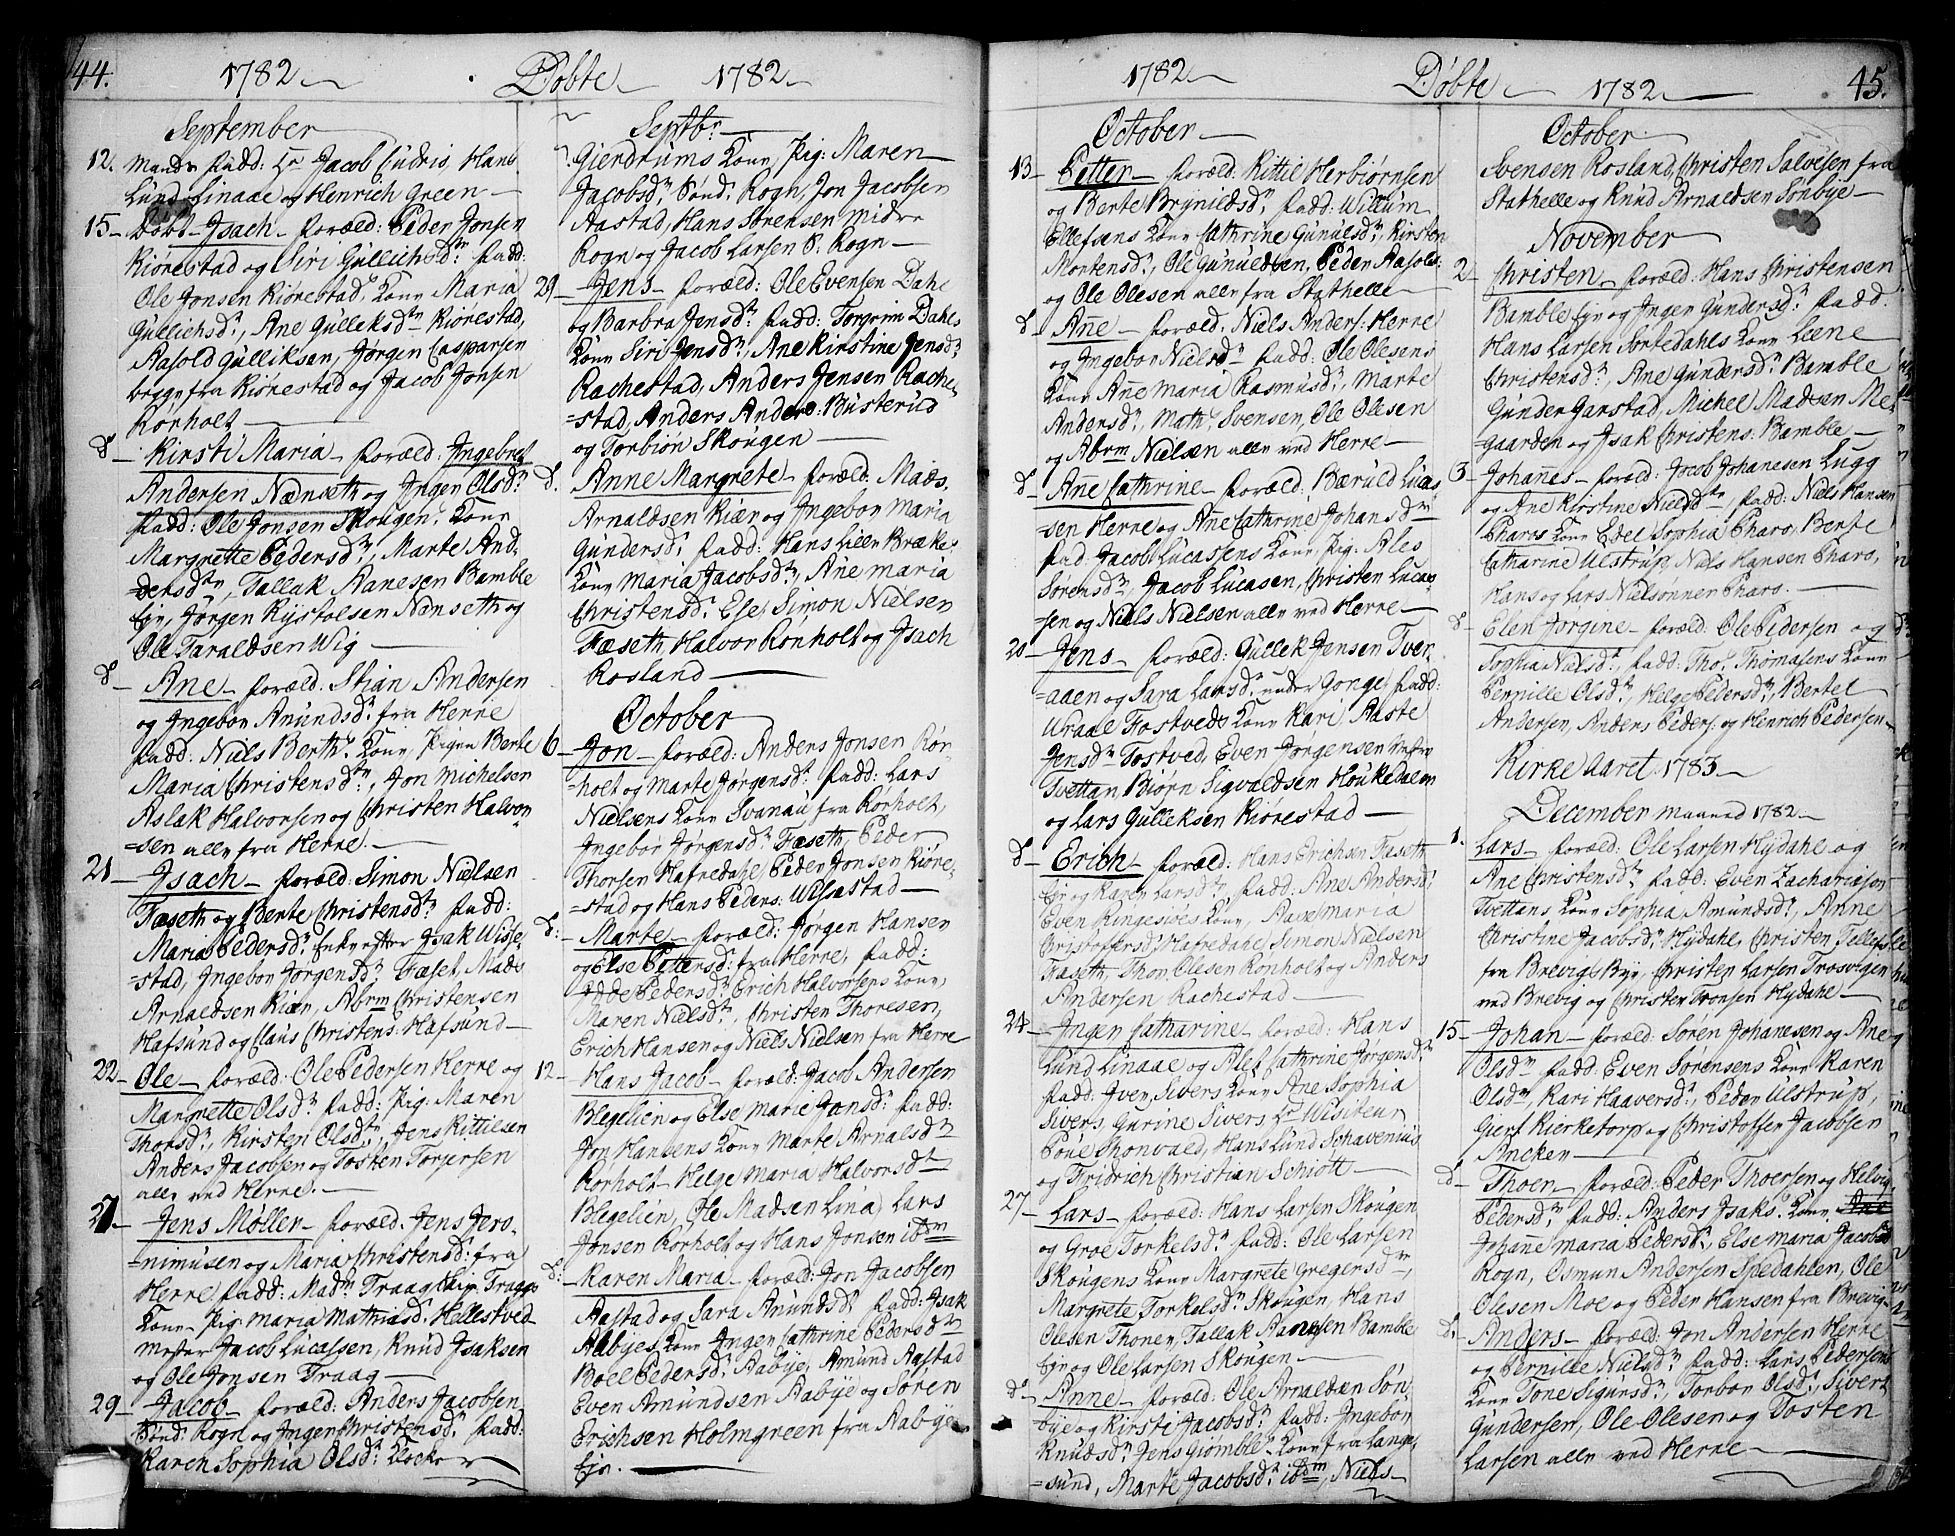 44.
1782
Döbte
1782
September
12. Mands fadd: Hr Jacob Cudris, Hans
Lund Linaae og Henrich Green
15 Döbt Isach foræld: Peder Jonsen
Kiörestad og Siri Gullichsdr fadd:
Ole Jonsen Kiörestad Kone Maria
Gullichsdr, Ane Gulleksdr Kiörestad,
Aasold Gulliksen, Jörgen Casparsen
begge fra Kiörestad og Jacob Jonsen
Rörholt
d Kirsti Maria foræld: Ingebret
Andersen Nænseth og Inger Olsdr
fadd: Ole Jonsen Skougen Kone
Margrette Pedersdr, Marte And
dersdr, Tallak Aanesen Bamble
Eje, Jörgen Kystolsen Nenseth og
Ole Taraldsen Wig
d Ane foræld: Stian Andersen
og Ingebor Amundsdr fra Herre
fadd: Niels Berths Kone, Pigen Berte
Maria Christensdr, Jon Michelsen
Aslak Halvorsen og Christen Halvor
=sen alle fra Herre.
21 Isach foræld: Simon Nielsen
Fæseth og Berte Christensdr fadd:
Maria Pedersdr Enke efter Isak Wisse
=stad, Ingebor Jörgensdr Fæset, Mads
Arnaldsen Kiær, Abrm Christensen
Hafsund og Claus Christens: Hafsund
22 Ole foræld: Ole Pedersen Herre og
Margrette Olsdr fadd: Pig: Maren
Thorsdr, Kirsten Olsdr, Jens Kittilsen
Anders Jacobsen og Tosten Torgersen
alle ved Herre.
27 Jens Møller foræld: Jens Jero
=nimusen og Maria Christensdr fra
Herre fadd: Madm Traag, Traags
Kone Pig: Maria Mathiasdr Hellestved
mester Jacob Lucassen, Knud Isaksen
og Ole Jonsen Traag
29 Jacob foræld: Anders Jacobsen
Sönd: Rogn og Inger Christensdr fadd:
Karen Sophia Olsdr Klocker
Septbr
Gierdrums Kone, Pig: Maren
Jacobsdr Sönd: Rogn, Jon Jacobsen
Aastad, Hans Sörensen Midre
Rogn og Jacob Larsen S: Rogn
29 Jens foræld: Ole Evensen Dahl
og Barbra Jensdr fadd: Torgrim Dahls
Kone Siri Jensdr, Ane Kirstine Jensdr
Rachestad, Anders Jensen Rache
=stad, Anders Anders: Busterud
og Torbiön Skougen
d. Anne Margrete foræld: Mads
Arnaldsen Kiær og Ingebor Maria
Gundersdr fadd: Hans Lille Brække
Kone Maria Jacobsdr, Ane Maria
Christensdr Ese, Simon Nielsen
Fæseth, Halvor Rönholt og Isach
Rosland
October
6 Jon foræld: Anders Jonsen Rör
=holt og Marte Jörgensdr fadd: Lars
Nielsens Kone Svanau fra Rörholt,
Ingebor Jörgensdr Fæseth, Peder
Thorsen Hafredahl, Peder Jonsen Kiöre
=stad og Hans Peders: Wissestad
d: Marte foræld: Jörgen Hansen
og Else Pettersdr fra Herre, fadd:
Pedersdr Erich Halvorsens Kone,
Maren Nielsdr, Christen Thoresen,
Erich Hansen og Niels Nielsen fra Herre
12 Hans Jacob foræld: Jacob Andersen
Blegelien og Else Marie Jonsdr fadd:
Jon Hansens Kone Marte Arnalsdr
Rörholt Helge Maria Halvorsdr
Blegelien, Ole Madsen Lina, Lars
Jonsen Rörholt og Hans Jonsen ibdm
d: Karen Maria foræld: Jon Jacobsen
Aastad og Sara Amundsdr fadd: Isak
Aabyes Kone Inger Cathrine Pedersdr
Boel Pedersdr Aabye, Amund Aastad
Even Amundsen Aabye og Sören
Erichsen Holmgreen fra Aabye
Eje.
1782
Döbte
1782
45.
October
13 Petter foræld: Kittil Herbiörnsen
og Berte Brynildsdr fadd: Willum
Ellefsens Kone Cathrine Gunulsdr, Kirsten
Mortensdr, Ole Gunuldsen, Peder Aasold:
og Ole Olesen alle fra Stathelle
d Ane foræld: Niels Anders: Herre
og Ingebor Nielsdr fadd: Ole Olesens
Kone Ane Maria Rasmusdr, Marte
Andersdr, Maths Svensen, Ole Olesen
og Abrm Nielsen alle ved Herre
d Ane Cathrine foræld: Bærull Lucas
=sen Herre og Ane Cathrine Johansdr
fad: Jacob Lucassens Kone Pig: Ales
Sörensdr, Jacob Lucasen, Christen Lucas
=sen og Niels Nielsen alle ved Herre
20 Jens foræld: Gullek Jensen Tver
=aaen og Sara Larsdr under Gonge, fadd:
Wraal Tostveds Kone Kari Aaste
Jensdr Tostved, Even Jörgensen Nefre
Tvettan, Biörn Sigvaldsen Houkedalen
og Lars Gulleksen Kiörestad
d Erich foræld: Hans Erichsen Fæseth
Eje og Karen Larsdr, fadd: Ane Andersdr
Even Ringesioes Kone, Maria
Christophersdr Hafredahl, Simon Nielsen
Fæseth, Thor Olesen Rönholt og Anders
Andersen Rachestad
24 Inger Catharine foræld: Hans
Lund Linaae og Alet Cathrine Jörgensdr
fadd: Iver Sivers Kone Ane Sophia
Sivers, Gurine Sivers Hr Wisiteur
Poul Thonvald, Hans Lund Schavenius
og Fridrich Christian Schiött
27 Lars foræld: Hans Larsen Skougen
og Groe Torkelsdr fadd: Ole Larsen
Skougens Kone Margrete Gregersdr,
Margrete Torkelsdr Skougen, Hans
Olesen Thoner, Tallak Aanesen Bamble
Eje og Ole Larsen Skougen
d: Anne foræld: Ole Arnaldsen Sön
bye og Kirsti Jacobsdr fadd: Ingebor
Knudsdr Jens Giömble Kone fra Lange
=sund, Marte Jacobsdr ibdm, Niels
October
Svensen Rosland, Christen Salvesen fra
Stathelle og Knud Arnaldsen Sönbye
November
2 Christen foræld: Hans Christensen
Bamble Eje og Inger Gundersdr fadd:
Hans Larsen Sortedahls Kone Leene
Christensdr, Ane Gundersdr Bamble
Gunder Garstad, Michel Madsen Me
=gaarden og Isak Christens: Bamble
3 Johanes foræld: Jacob Johanesen Lugg
og Ane Kirstine Nielsdr fadd: Niels Hansen
Charos Kone Edel Sophia Charo, Berte
Catharine Ulstrup, Niels Hansen Charo,
Hans og Lars Nielsønner Charo.
d Elen Jörgine foræld: Ole Pedersen og
Sophia Nielsdr, fadd: Tho: Thomasens Kone
Pernille Olsdr, Helge Pedersdr, Bertel
Andersen, Anders Peders: og Henrich Pedersen
Kirke Aaret 1783
December Maaned 1782
1. Lars foræld: Ole Larsen Hydahl og
Ane Christensdr fadd: Even Zachariason
Tvettans Kone Sophia Amundsdr, Anne
Christine Jacobsdr Hydahl, Christen Tellefs
fra Brevigs Bye, Christen Larsen Trosvigen
ved Brevig og Christen Tronsen Hydahl
15 Johan foræld: Sören Johanesen og Ane
Olsdr fadd: Even Sörensens Kone Karen
Olsdr, Kari Haaversdr, Peder Ulstrup,
Giert Kierketorp og Christoffer Jacobsen
Ancker
d Thoer foræld: Peder Thoersen og Helvig
Pedersdr fadd: Anders Isaks: Kone Ane
Johane Maria Pedersdr, Else Maria Jacobsdr
Rogn, Osmun Andersen Spedahlen, Ole
Olesen Moe og Peder Hansen fra Brevig
d. Anders foræld: Jon Andersen Herre
og Pernille Nielsdr fadd: Lars Pedersens
Kone Tone Sigursdr, Torbor Olsdr, Sivert
Gundersen, Ole Olesen og Tosten
Larsen alle ved Herre